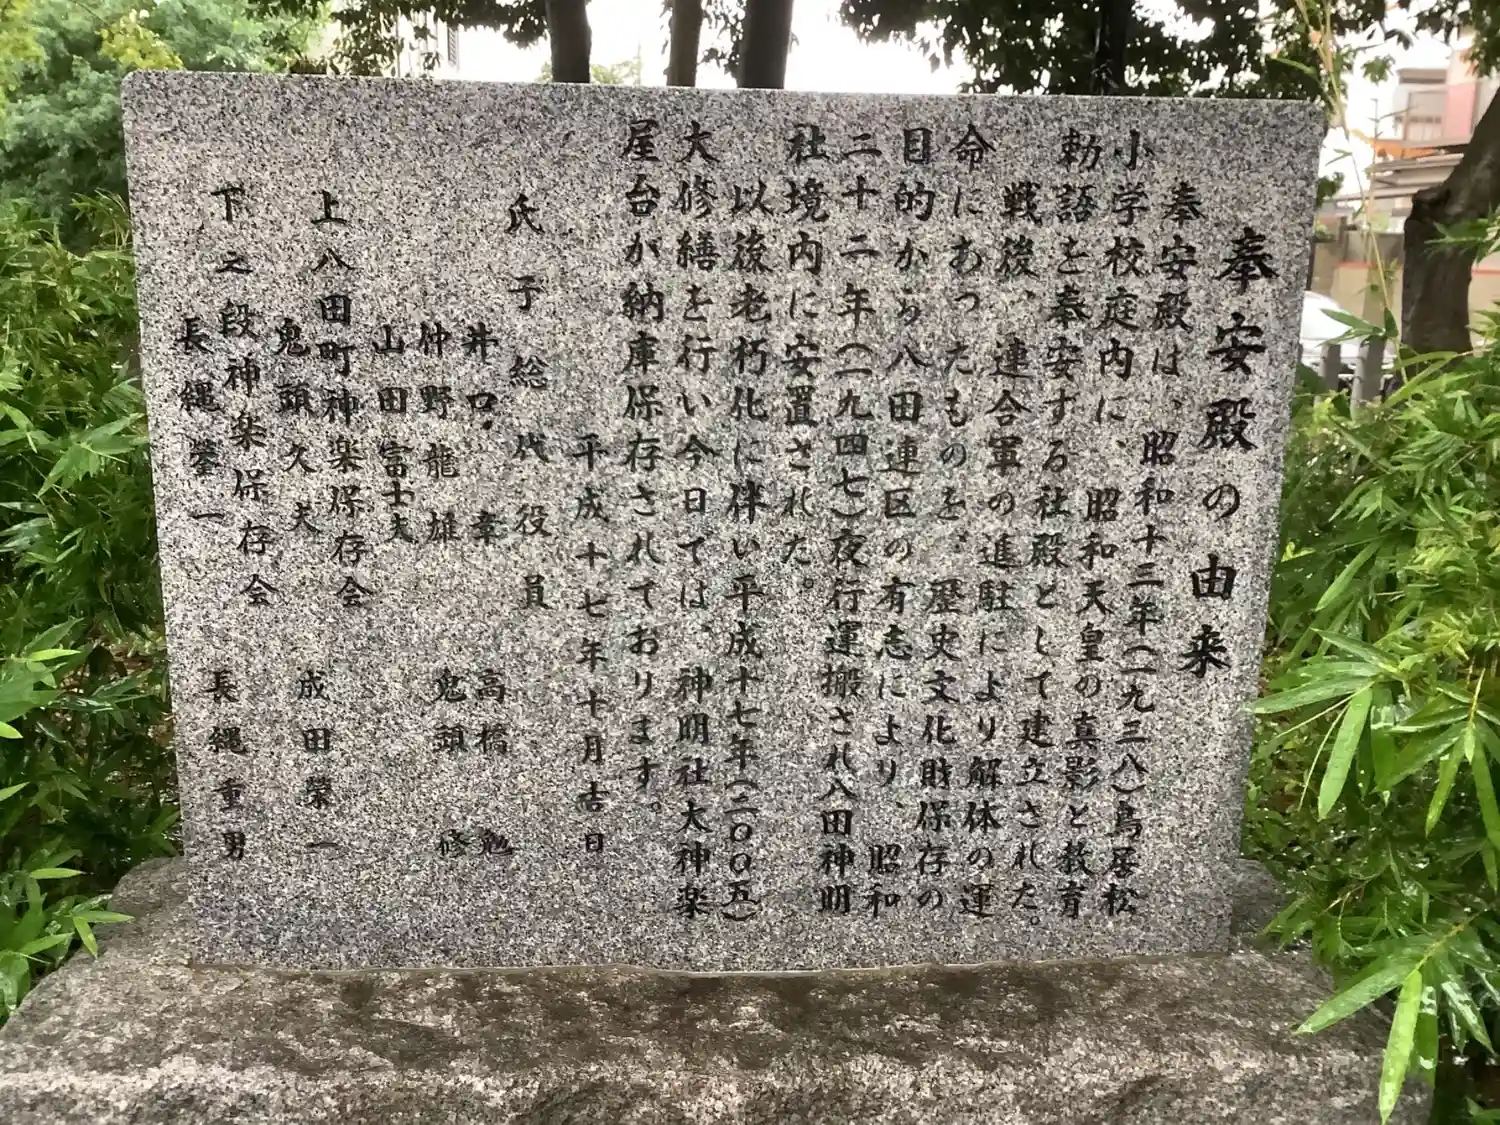 奉安殿の由来
奉安殿は、昭和十三年(一九三八)鳥居松
小学校庭内に、昭和天皇の真影と教育
勅語を奉安する社殿として建立された。
戦後、連合軍の進駐により解体の運
命にあったものを、歴史文化財保存の
目的から八田連区の有志により、昭和
二十二年(一九四七)夜行運搬され八田神明
社境内に安置された。
以後老朽化に伴い平成十七年(二〇〇五)
大修繕を行い今日では、神明社大神楽
屋台が納庫保存されております。
平成十七年十月吉日
氏子総代役員
井口 幸 高橋 勉
仲野龍雄 鬼頭 修
山田富士夫
上八田町神楽保存会
鬼頭久夫 成田榮一
下之段神楽保存会
長縄 一 長縄重男